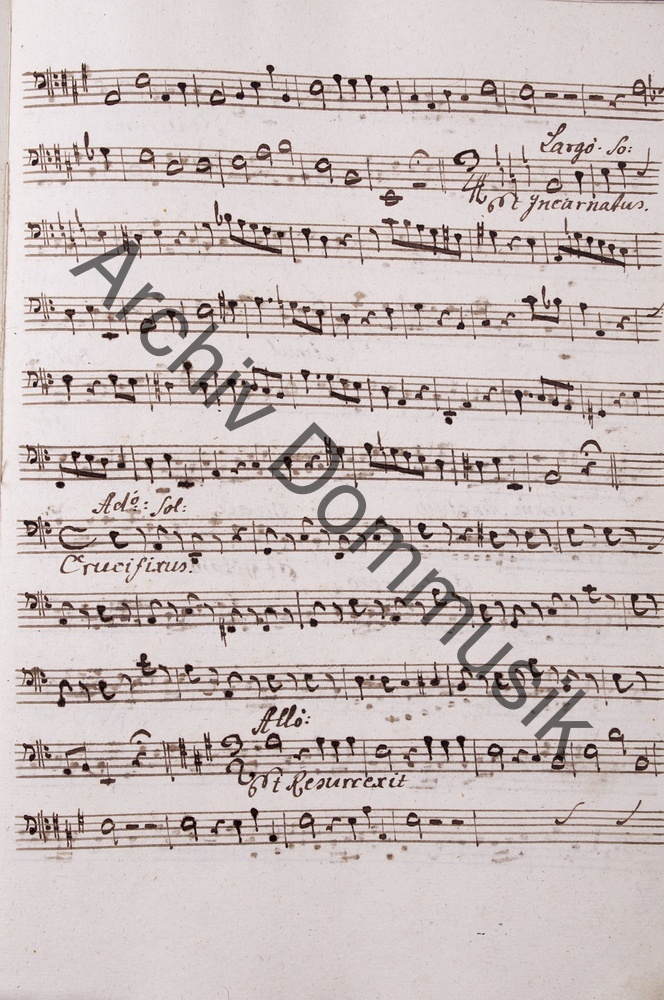 Largo. So:
Et Incarnatus.
Ado: Sol:
Crucifixus.
Allo:
Et Resurrexit
Archiv Dommusik